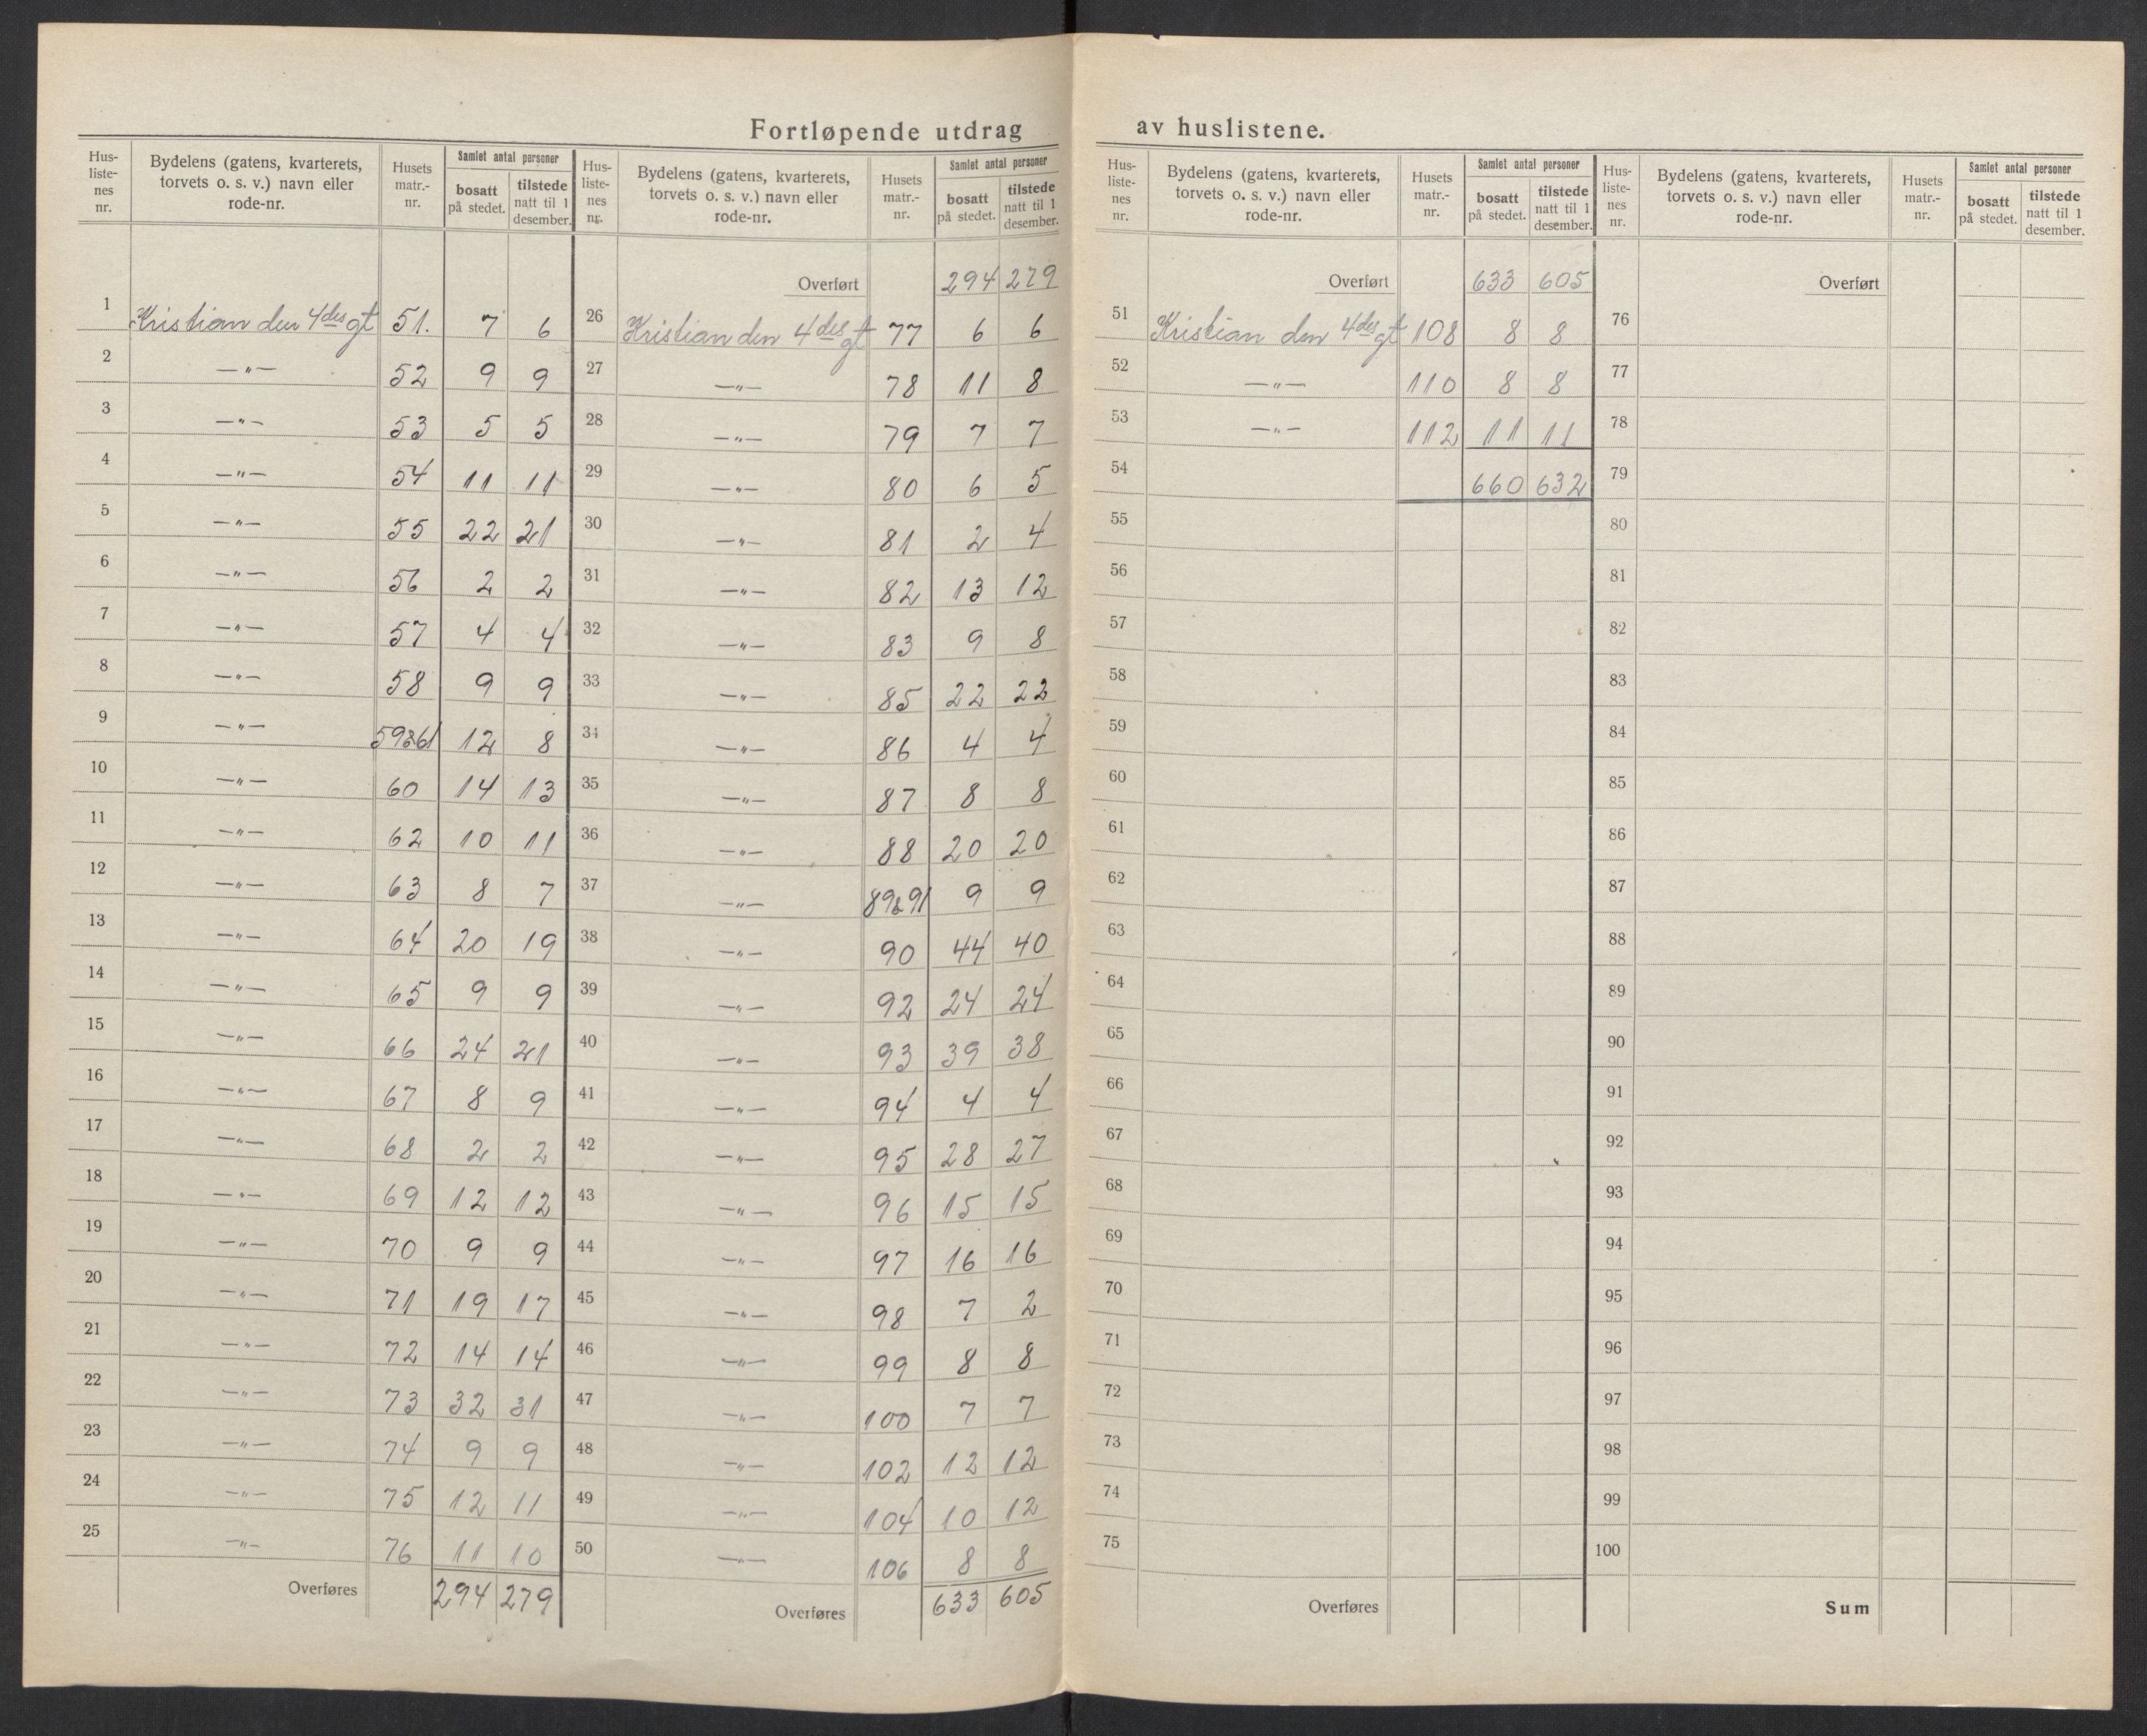 Fortløpende utdrag av huslistene.
Hus-listenes nr. | Bydelens (gatens, kvarterets, torvets o. s. v.) navn eller rode-nr. | Husets matr.-nr. | Samlet antal personer bosatt på stedet. | tilstede natt til 1 desember.
1 Kristian den 4des gt 51. 7 6
2 —"— 52 9 9
3 —"— 53 5 5
4 —"— 54 11 11
5 —"— 55 22 21
6 —"— 56 2 2
7 —"— 57 4 4
8 —"— 58 9 9
9 —"— 59&61 12 8
10 —"— 60 14 13
11 —"— 62 10 11
12 —"— 63 8 7
13 —"— 64 20 19
14 —"— 65 9 9
15 —"— 66 24 21
16 —"— 67 8 9
17 —"— 68 2 2
18 —"— 69 12 12
19 —"— 70 9 9
20 —"— 71 19 17
21 —"— 72 14 14
22 —"— 73 32 31
23 —"— 74 9 9
24 —"— 75 12 11
25 —"— 76 11 10
Overføres 294 279
Hus-listenes nr. | Bydelens (gatens, kvarterets, torvets o. s. v.) navn eller rode-nr. | Husets matr.-nr. | Samlet antal personer bosatt på stedet. | tilstede natt til 1 desember.
Overført 294 279
26 Kristian den 4des gt 77 6 6
27 —"— 78 11 8
28 —"— 79 7 7
29 —"— 80 6 5
30 —"— 81 2 4
31 —"— 82 13 12
32 —"— 83 9 8
33 —"— 85 22 22
34 —"— 86 4 4
35 —"— 87 8 8
36 —"— 88 20 20
37 —"— 89&91 9 9
38 —"— 90 44 40
39 —"— 92 24 24
40 —"— 93 39 38
41 —"— 94 4 4
42 —"— 95 28 27
43 —"— 96 15 15
44 —"— 97 16 16
45 —"— 98 7 2
46 —"— 99 8 8
47 —"— 100 7 7
48 —"— 102 12 12
49 —"— 104 10 12
50 —"— 106 8 8
Overføres 633 605
Hus-listenes nr. | Bydelens (gatens, kvarterets, torvets o. s. v.) navn eller rode-nr. | Husets matr.-nr. | Samlet antal personer bosatt på stedet. | tilstede natt til 1 desember.
Overført 633 605
51 Kristian den 4des gt 108 8 8
52 —"— 110 8 8
53 —"— 112 11 11
54 660 632
55
56
57
58
59
60
61
62
63
64
65
66
67
68
69
70
71
72
73
74
75
Overføres
Hus-listenes nr. | Bydelens (gatens, kvarterets, torvets o. s. v.) navn eller rode-nr. | Husets matr.-nr. | Samlet antal personer bosatt på stedet. | tilstede natt til 1 desember.
Overført
76
77
78
79
80
81
82
83
84
85
86
87
88
89
90
91
92
93
94
95
96
97
98
99
100
Sum